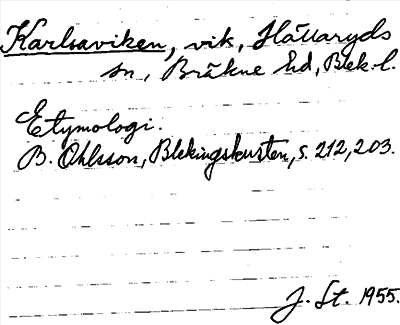 Karlsaviken, vik, Hällaryds
sn, Bräkne hd, Blek. l.
Etymologi.
B. Ohlsson, Blekingskusten, s. 212, 203.
J. St. 1955.